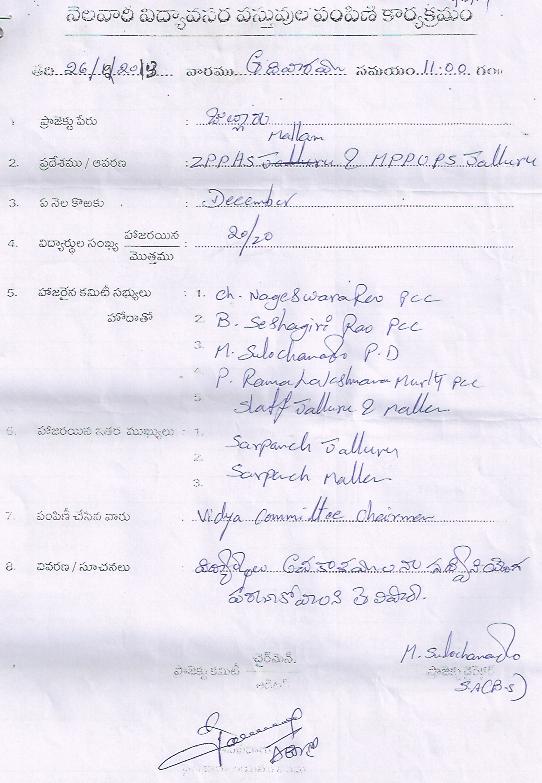 నెలవారీ విద్యావసర వస్తువుల పంపిణి కార్యక్రమం
తేది 26/ /2013 వారము సమయం 11:00 గం
1. ప్రాజెక్టు పేరు : జల్లూరు
Mallam
2. ప్రదేశము / ఆవరణ : ZPPHS Jalluru & MPPUPS Jalluru
3. ఏ నెల కొఱకు : December
4. విద్యార్థుల సంఖ్య హాజరయిన / మొత్తము : 20/20
5. హాజరైన కమిటీ సభ్యులు : 1. Ch. Nageswara Rao PCC
హోదాతో 2. B. Seshagiri Rao PCC
3. M. Sulochana P.D
4. P. Rama Lakshmana Murty PCC
5. Staff Jalluru & Mallam
6. హాజరయిన ఇతర ముఖ్యులు : 1. Sarpanch Jalluru
2. Sarpanch Mallam
3.
7. పంపిణీ చేసిన వారు : Vidya Committee Chairman
8. వివరణ / సూచనలు : విద్యార్థులు
తెలిపారు.
చైర్మెన్. M. Sulochana
ప్రాజెక్టు కమిటీ
S.A(B.S)